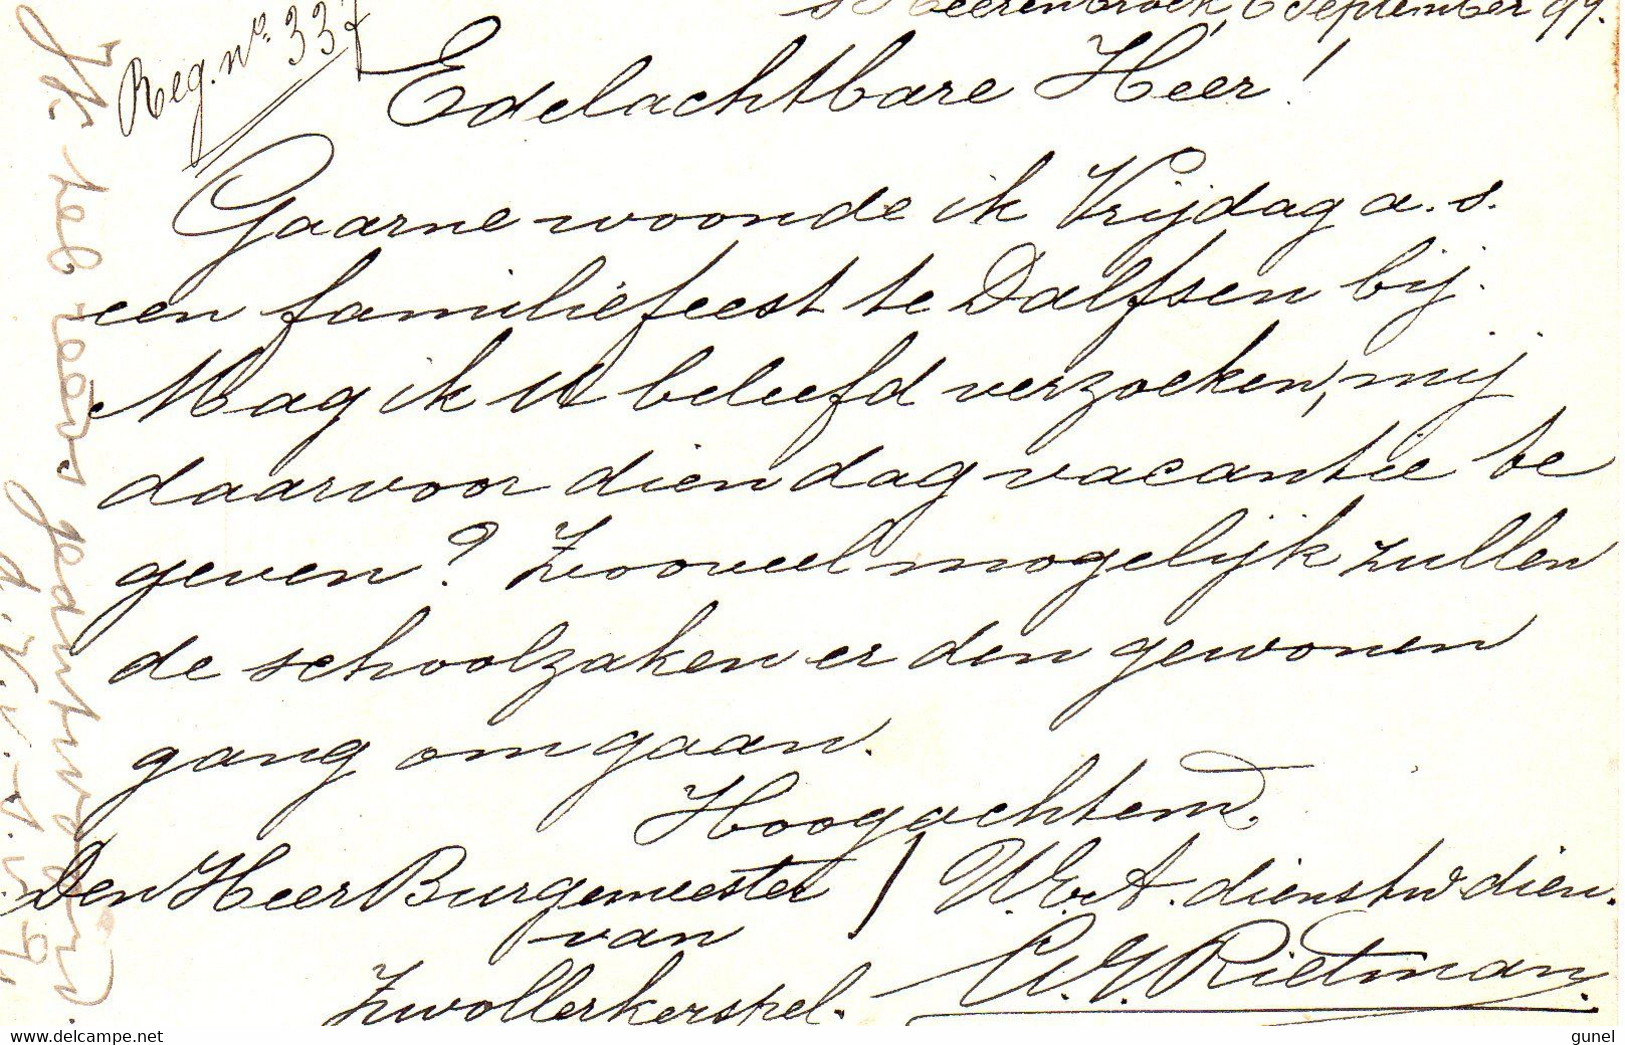 's Heerenbroek, 6 September 99.
Reg. no. 337
Edelachtbare Heer!
Gaarne woonde ik Vrijdag a.s.
een familiefeest te Dalfsen bij.
Mag ik U beleefd verzoeken, mij
daarvoor dien dag vacantie te
geven? Zooveel mogelijk zullen
de schoolzaken er den gewonen
gang om gaan.
Hoogachtend,
Den Heer Burgemeester
van
Zwollerkerspel.
U.E.A. dienstw dien.
Rietman.
Ik heb reeds geantwoord.
gunel
www.delcampe.net